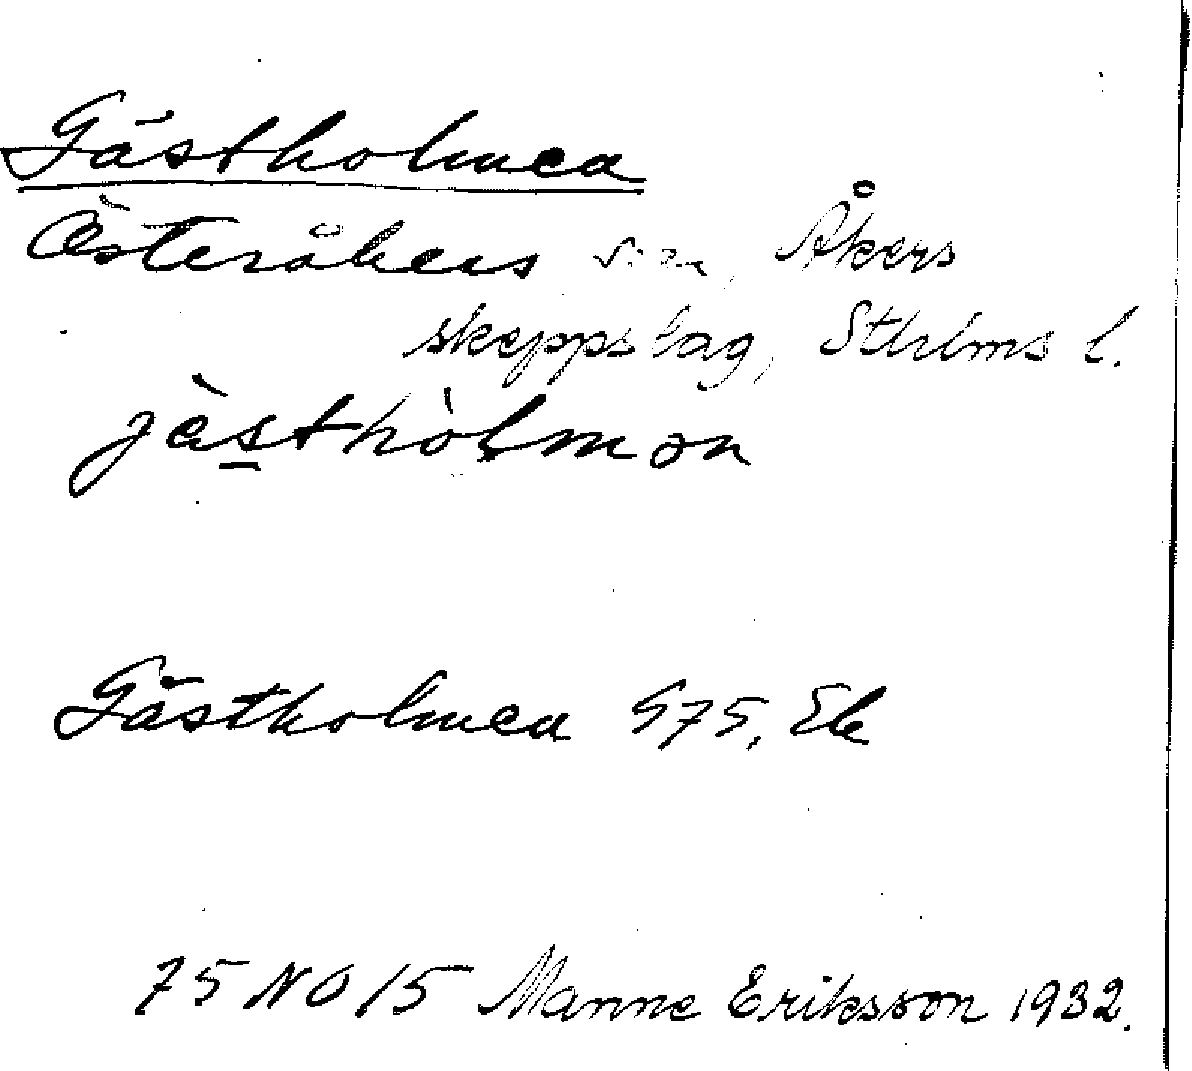 Gästholmen
Österåkers sn, Åkers
skeppslag, Sthlms l.
jàsthòlmən
Gästholmen G75, Ek
75 NO 15 Manne Eriksson 1932.